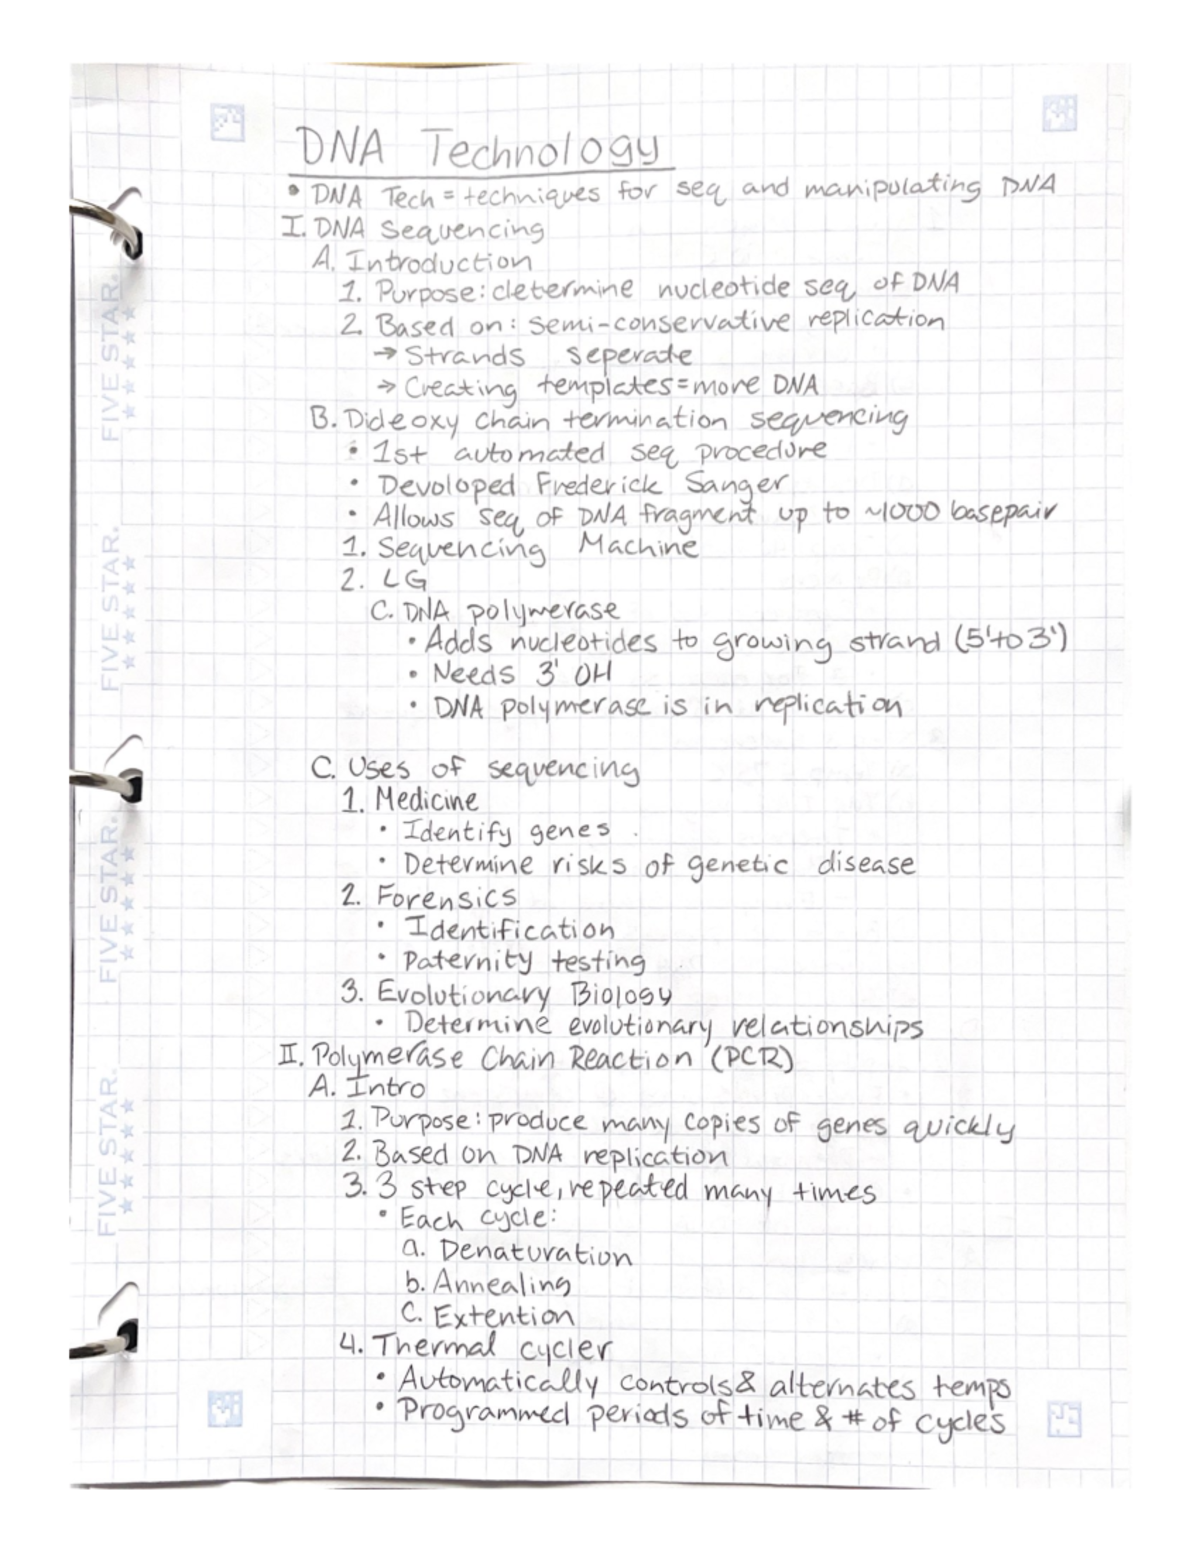 DNA Technology
• DNA Tech = techniques for seq and manipulating DNA
I. DNA Sequencing
A. Introduction
1. Purpose: determine nucleotide seq of DNA
2. Based on: semi-conservative replication
→ Strands seperate
→ Creating templates = more DNA
B. Dideoxy chain termination sequencing
• 1st automated seq procedure
• Devoloped Frederick Sanger
• Allows seq of DNA fragment up to ~1000 basepair
1. Sequencing Machine
2. LG
C. DNA polymerase
• Adds nucleotides to growing strand (5' to 3')
• Needs 3' OH
• DNA polymerase is in replication
C. Uses of sequencing
1. Medicine
• Identify genes
• Determine risks of genetic disease
2. Forensics
• Identification
• Paternity testing
3. Evolutionary Biology
• Determine evolutionary relationships
II. Polymerase Chain Reaction (PCR)
A. Intro
1. Purpose: produce many copies of genes quickly
2. Based on DNA replication
3. 3 step cycle, repeated many times
• Each cycle:
a. Denaturation
b. Annealing
C. Extention
4. Thermal cycler
• Automatically controls & alternates temps
• Programmed periods of time & # of cycles
FIVE STAR.
FIVE STAR.
FIVE STAR.
FIVE STAR.